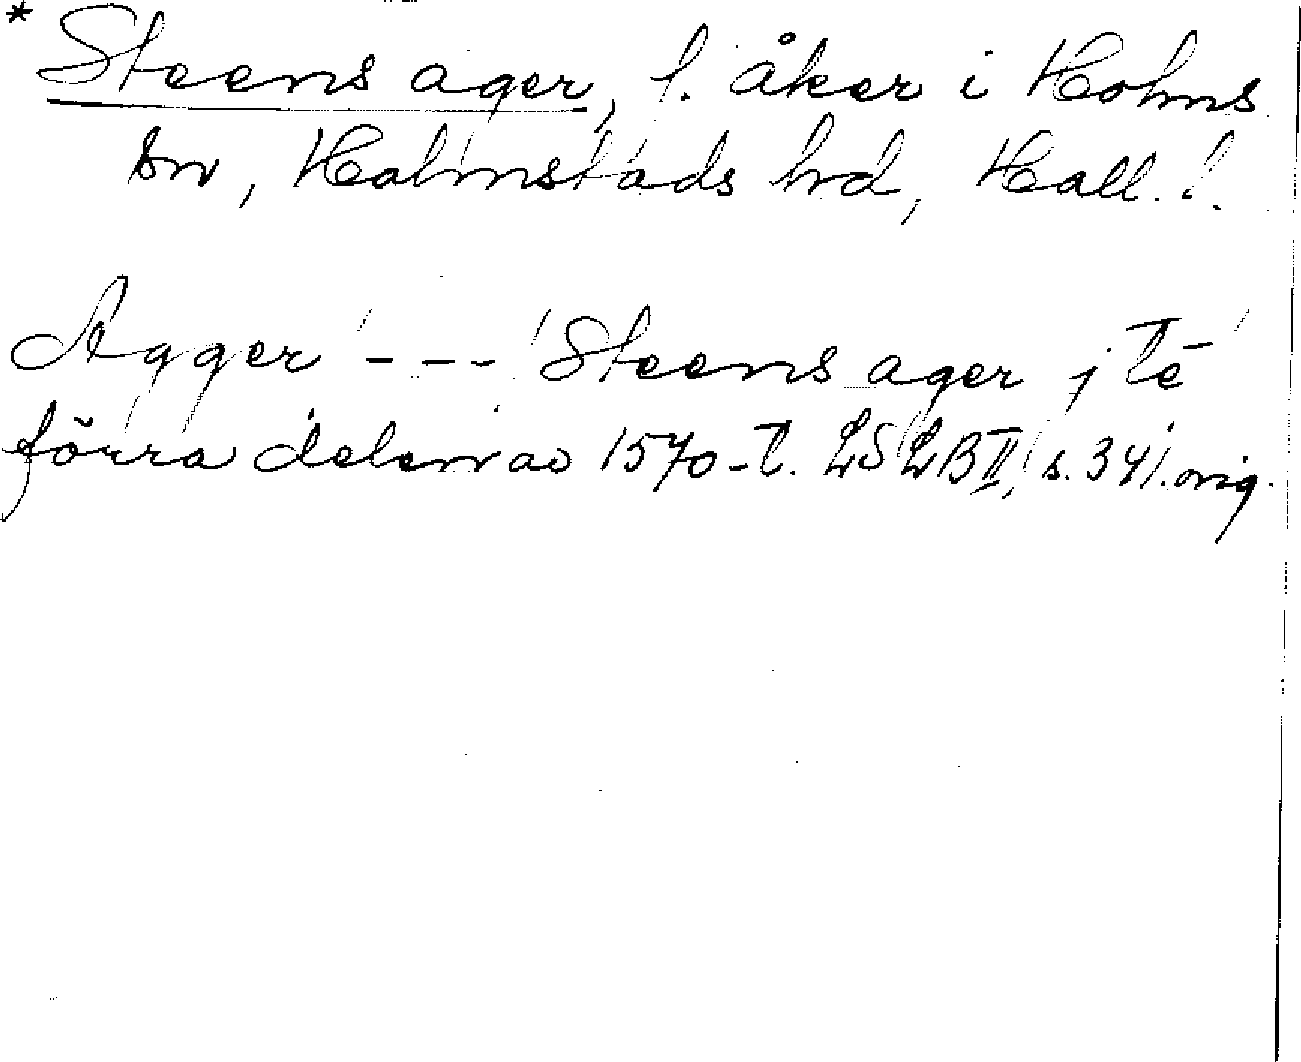 * Steens ager, f. åker i Holms
sn, Halmstads hrd, Hall. l.
Agger - - - Steens ager j té
förra delen av 1570-t. LSLB II, s. 341. orig.